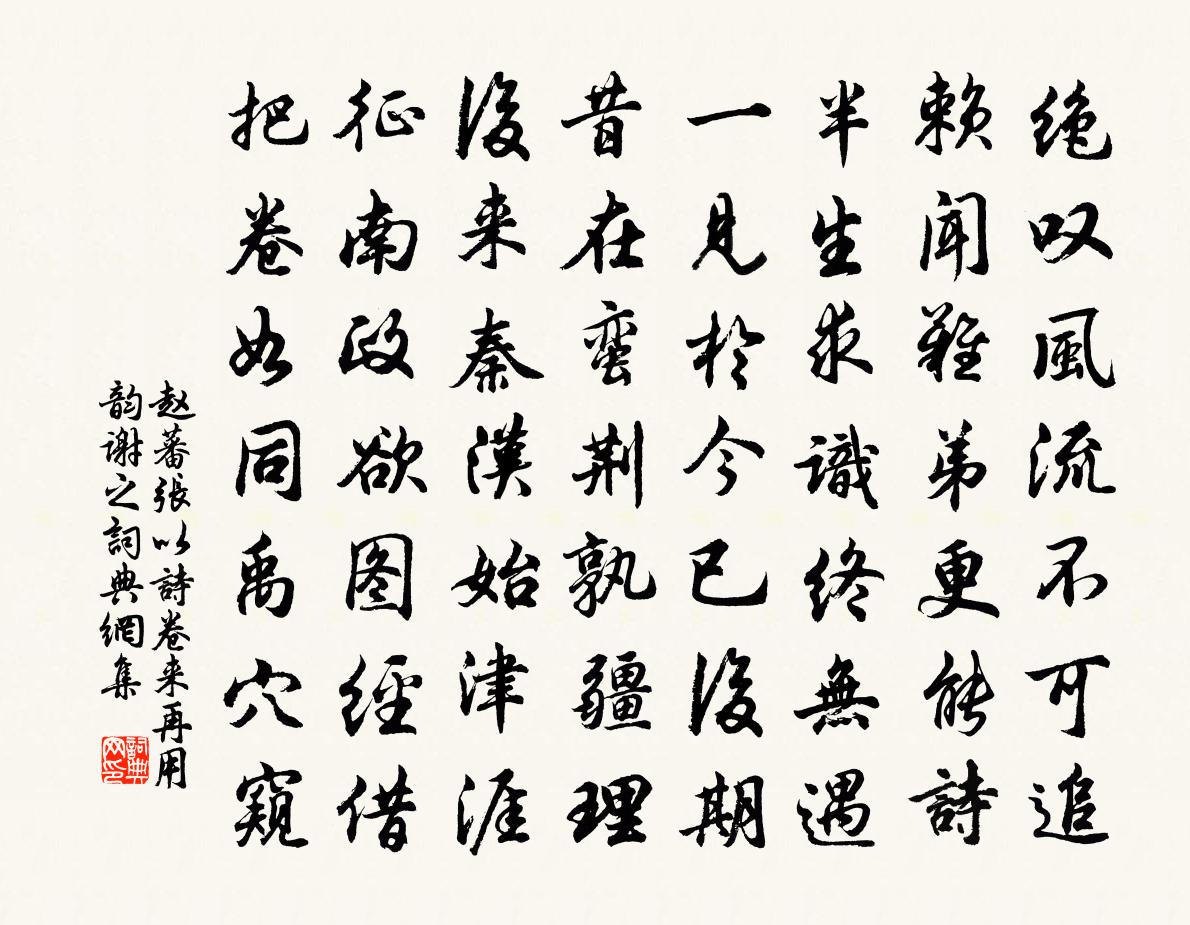 绝叹風流不可追
賴闻難弟更能詩
半生求識終無遇
一見於今已後期
昔在蛮荆孰疆理
後来秦漢始津涯
征南政欲图經借
把卷如同禹穴窺
赵蕃張以詩卷来再用
韵谢之詞典網集
詞典
网印